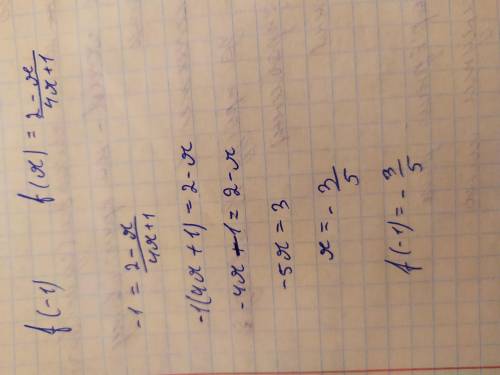 f(-1) f(x) = \frac{2-x}{4x+1}
-1 = \frac{2-x}{4x+1}
-1(4x+1) = 2-x
-4x-1 = 2-x
-5x = 3
x = -\frac{3}{5}
f(-1) = -\frac{3}{5}